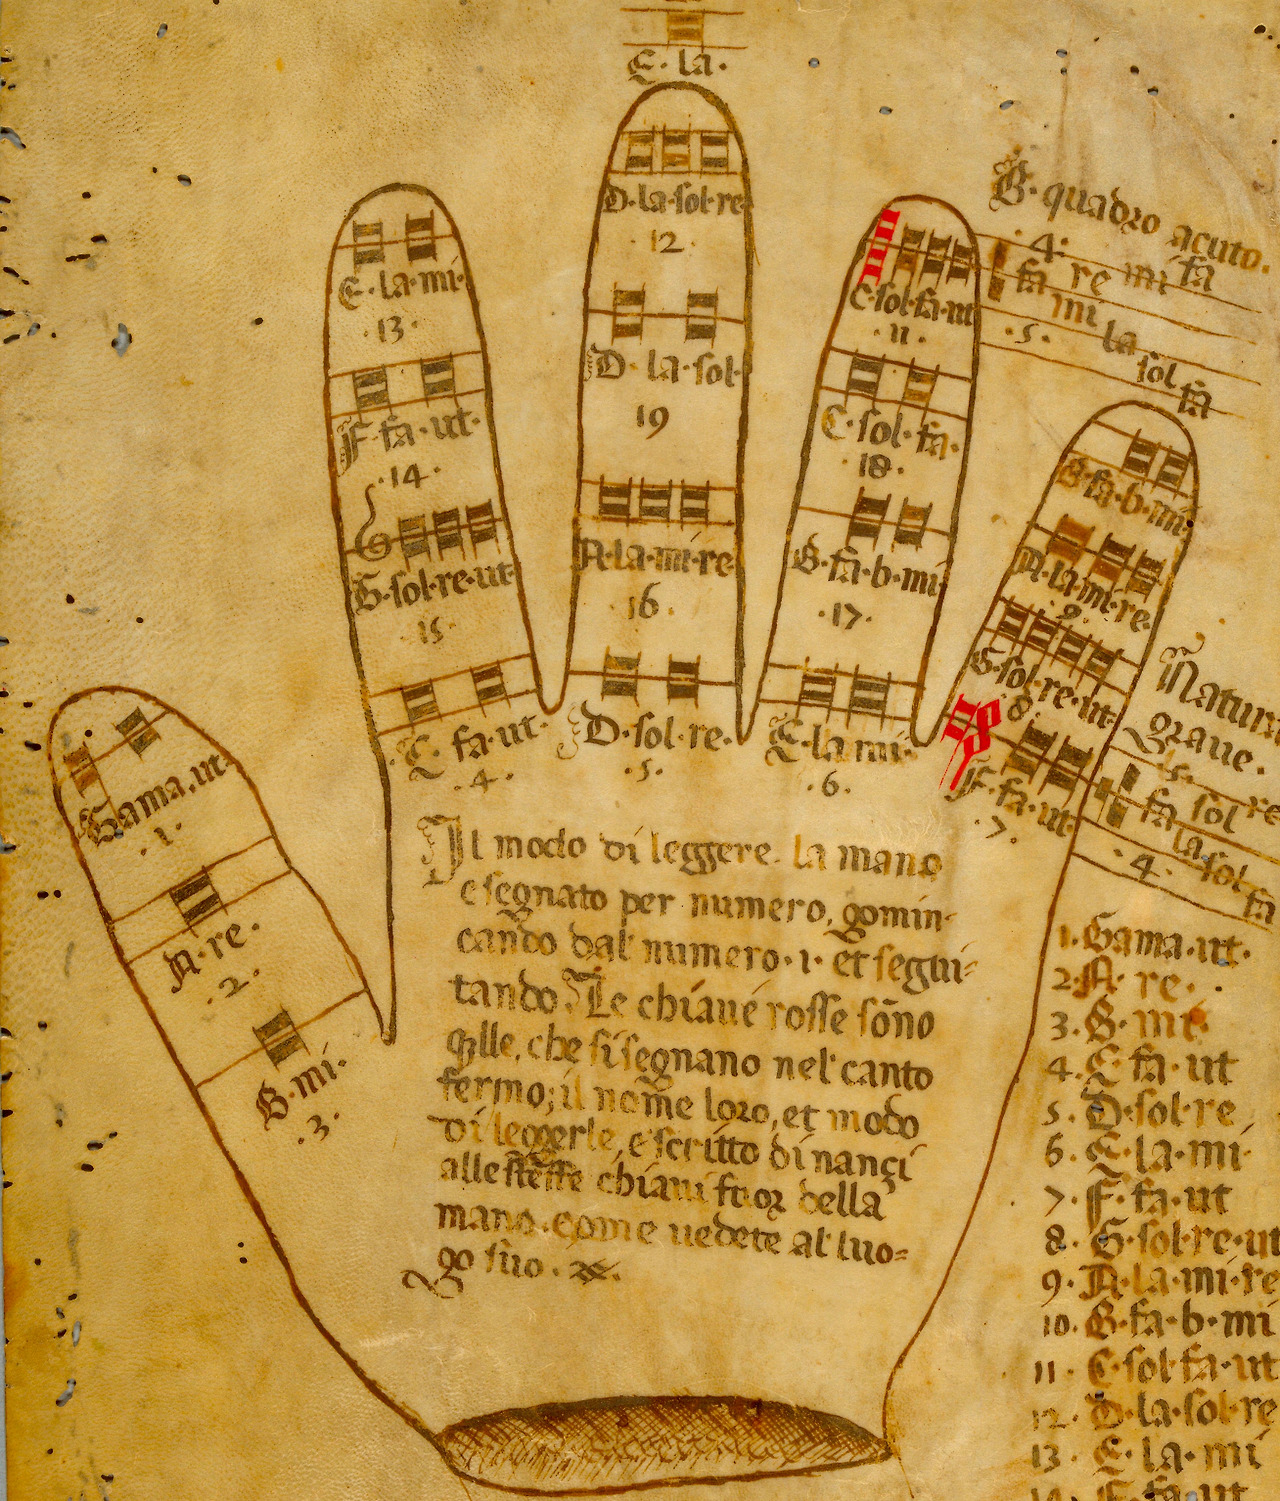 E· la·
D·la·sol·re
·12·
E·la·mi·
·13·
F·fa·ut·
·14·
G
G·sol·re·ut·
·15·
C fa·ut·
·4·
D·la·sol·
19
A·la·mi·re·
·16·
D·sol·re·
·5·
C·sol·fa·ut
·11·
C·sol·fa·
·18·
B·fa·b·mi
·17·
E·la·mi·
·6·
B·fa·b·mi·
A·la·mi·re·
·9·
G·sol·re·ut·
·8·
F·fa·ut·
·7·
Gama·ut·
·1·
A·re·
·2·
B·mi·
·3·
B· quadro acuto.
·4·
fa re mi fa
mi
·5· la
sol
fa
Natura
graue.
·5·
re
fa sol
la
·4· sol
fa
Il modo di leggere la mano
e segnato per numero, gomin-
cando dal numero·1· et segui=
tando. Le chiaue rosse sōno
qlle, che si segnano nel canto
fermo; il nome loro, et modo
di leggerle, e scritto dinançi
alle stesse chiaui fuor della
mano· come uedete al luo=
go suo·
1·Gama·ut·
2·A· re·
3·B· mi·
4·C fa·ut
5·D·sol·re
6·E·la·mi·
7·F·fa·ut
8·G·sol·re·ut
9·A·la·mi·re
10·B·fa·b·mi
11·C·sol·fa·ut
12·D·la·sol·re
13·E·la·mi
14·F·fa·ut